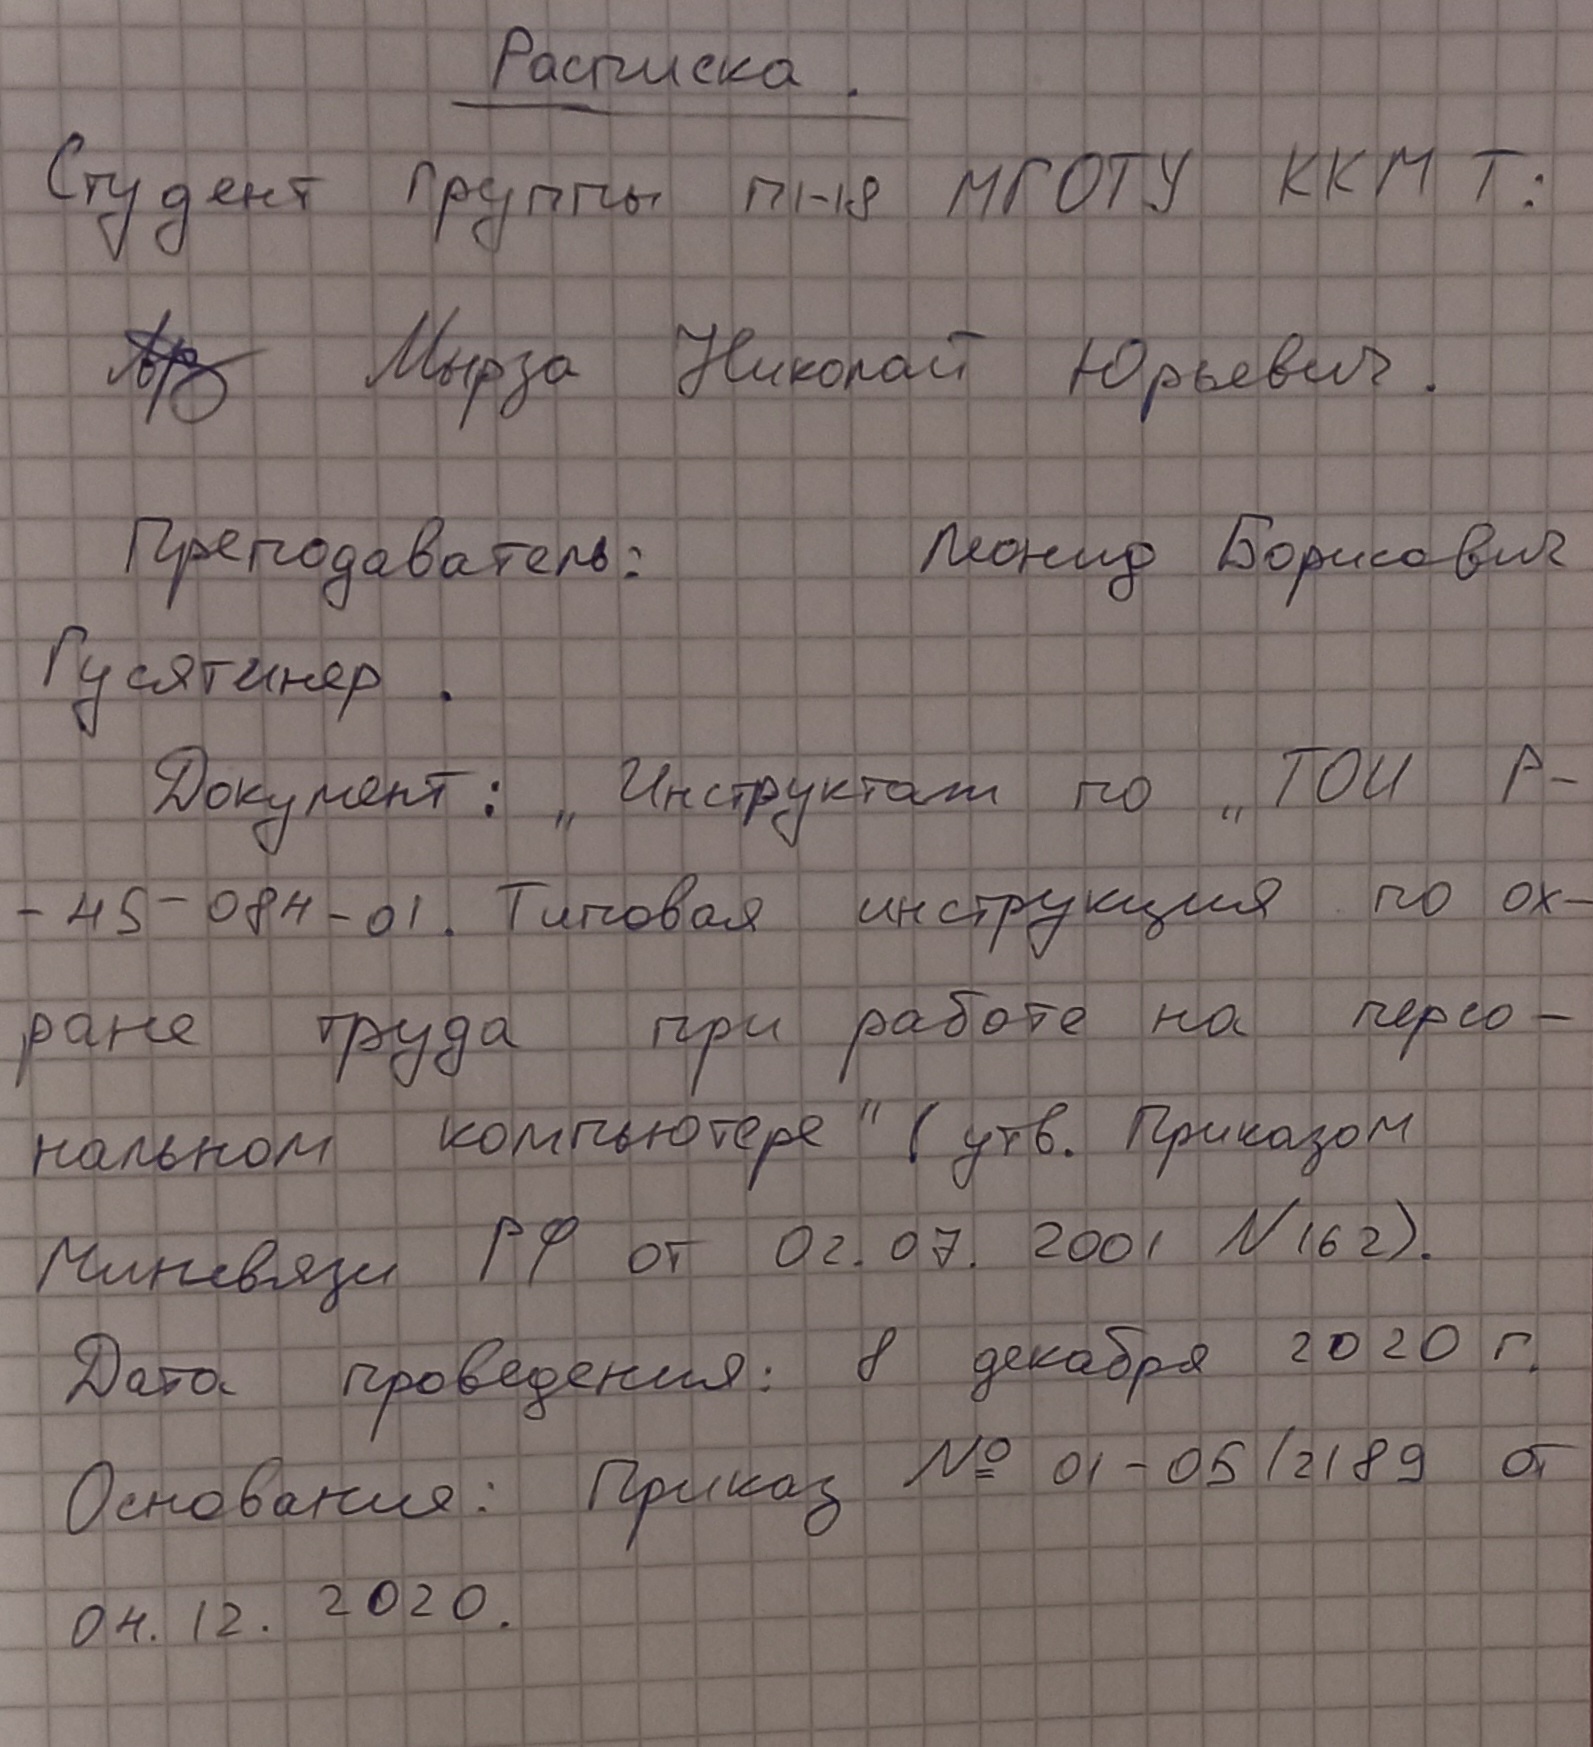 Расписка.
Студент группы П1-18 МГОТУ ККМТ:
Мырза Николай Юрьевич.
Преподаватель: Леонид Борисович
Гусятинер.
Документ: „Инструктаж по „ТОИ Р-
-45-084-01. Типовая инструкция по ох-
ране труда при работе на персо-
нальном компьютере" (утв. Приказом
Минсвязи РФ от 02.07.2001 N 162).
Дата проведения: 8 декабря 2020 г.
Основания: Приказ № 01-05/2189 от
04.12.2020.